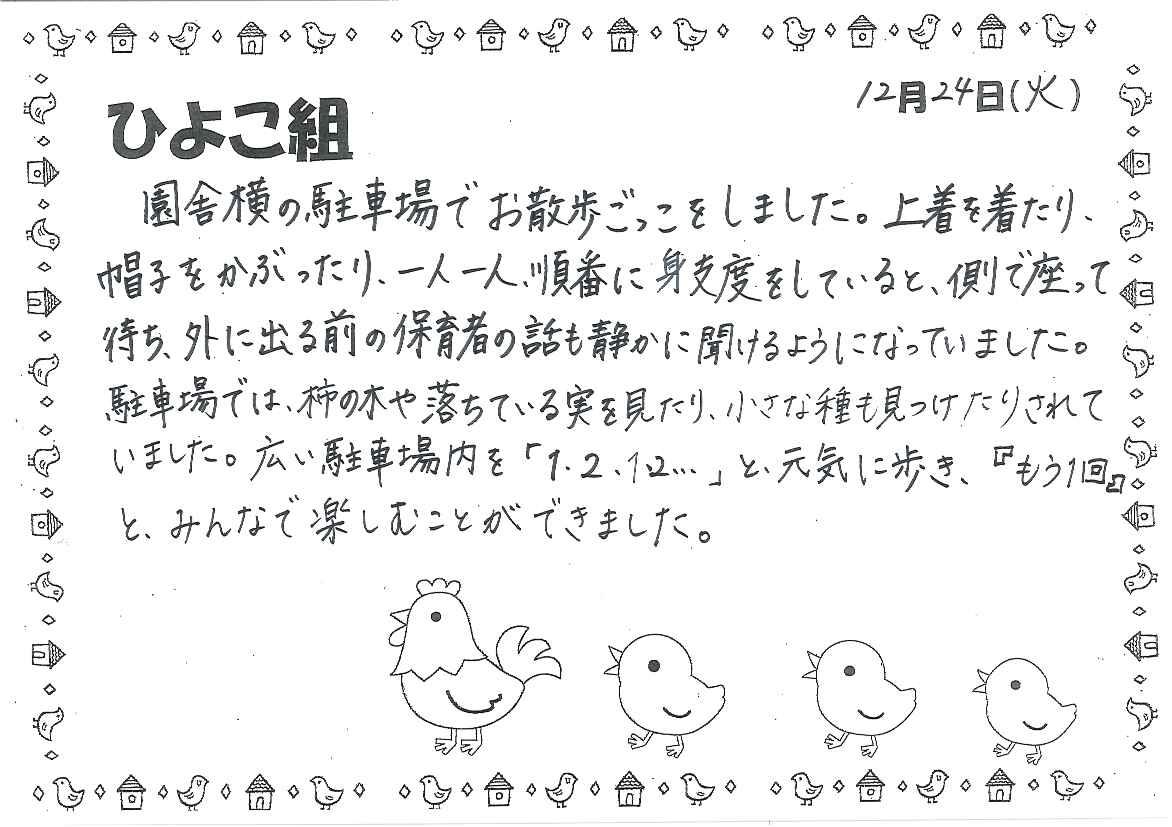 12月24日(火)
ひよこ組
園舎横の駐車場でお散歩ごっこをしました。上着を着たり、
帽子をかぶったり、一人一人、順番に身支度をしていると、側で座って
待ち、外に出る前の保育者の話も静かに聞けるようになっていました。
駐車場では、柿の木や落ちている実を見たり、小さな種も見つけたりされて
いました。広い駐車場内を「1.2.1.2…」と、元気に歩き、『もう1回』
と、みんなで楽しむことができました。